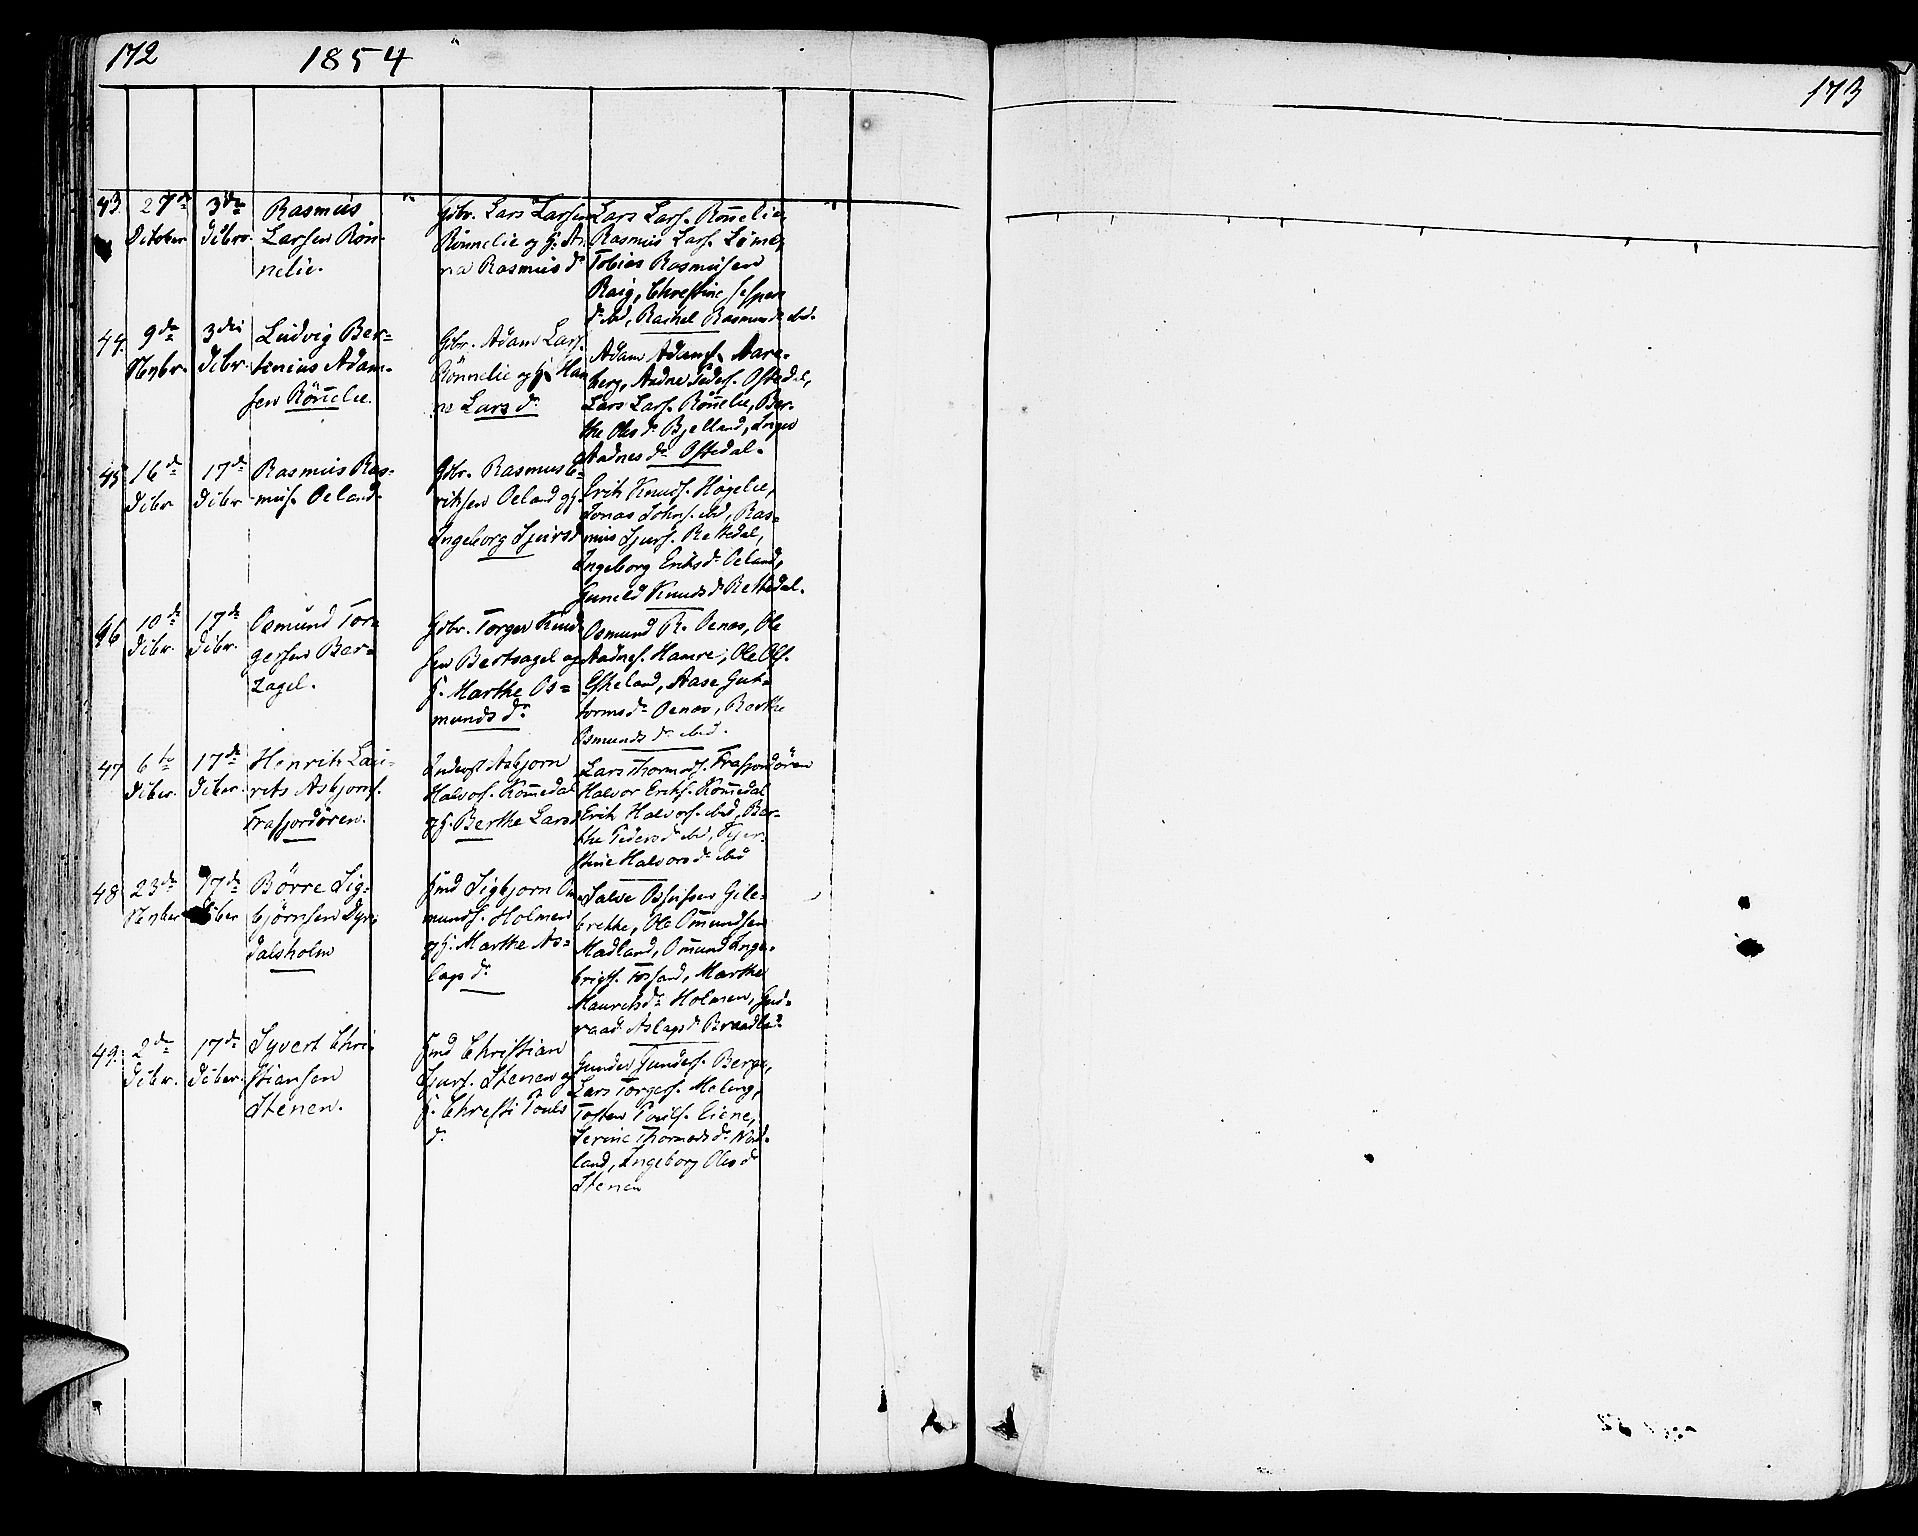 172
1854
173
43.
27de
October
3die
Dcbr.
Rasmus
Larsen Rön-
nelie.
Gdbr. Lars Larsen
Rönnelie og H. An-
na Rasmus d.
Lars Lars. Rönnelie,
Rasmus Lars. Löme,
Tobias Rasmussen
Raig, Christine Jesper
d. ibd, Rachel Rasmus d. ibd.
44.
9de
Novbr.
3die
Dcbr.
Ludvig Ber-
tinius Adam-
sen Rönelie.
Gdbr. Adam Lars.
Rönnelie og H. Han
ne Lars d.
Adam Adams. Aare-
berg, Aadne Peders. Oftedal,
Lars Lars. Rönelie, Ber-
the Oles d. Bjelland, Inger
Aadnes d. Oftedal.
45
16de
Dcbr.
17de
Dcbr.
Rasmus Ras-
mus. Oeland.
Gdbr. Rasmus E-
riksen Oeland og H.
Ingeborg Sjurs d.
Erik Knuds. Høgelie,
Jonas Johns. ibd, Ras-
mus Sjurs. Rettedal,
Ingeborg Eriks d. Oeland,
Guneld Knuds d. Rettedal.
46
10de
Dcbr.
17de
Dcbr.
Osmund Tor-
gersen Ber-
zagel.
Gdbr. Torger Knud-
sen Bertsagel og
H. Marthe Os-
munds d.
Osmund R. Oenæs, Ole
Aadnes. Hamre, Ole Ols.
Eskeland, Aase Gut-
torms d. Oenæs, Berthe
Osmunds d. ibd.
47
6te
Dcber.
17de
Dcber.
Henrik Lau-
rits Asbjorns.
Frafjordören.
Inderst Asbjorn
Halvors. Rommedal
og H. Berthe Lars d.
Lars Thormods. Frafjordören
Halvor Eriks. Rommedal
Erik Halvors. ibd, Ber-
the Peders d. ibd,
stine Halvors d. ibd
48
23de
Novber
17de
Dcber
Börre Sig-
björnsen Dyr-
dalsholm
Hmd Sigbjorn Om-
munds. Holmen
og H. Marthe As-
lags d.
Salve Gile-
brekke, Ole Ommundsen
Madland, Ommund Inge-
brigts. Forsand, Marthe
Maurits d. Holmen, Gud-
raad Aslags d. Braadland.
49.
2de
Dcbr.
17de
Dcber.
Syvert Chri-
stiansen
Stenen.
Hmd Christian
Sjurs. Stenen og
H. Christi Pouls
d.
Gunder Gunders. Berge,
Lars Torgers. Meling,
Tosten Pouls. Eiene,
Serine Thormods d. Nord-
land, Ingeborg Oles d.
Stenen